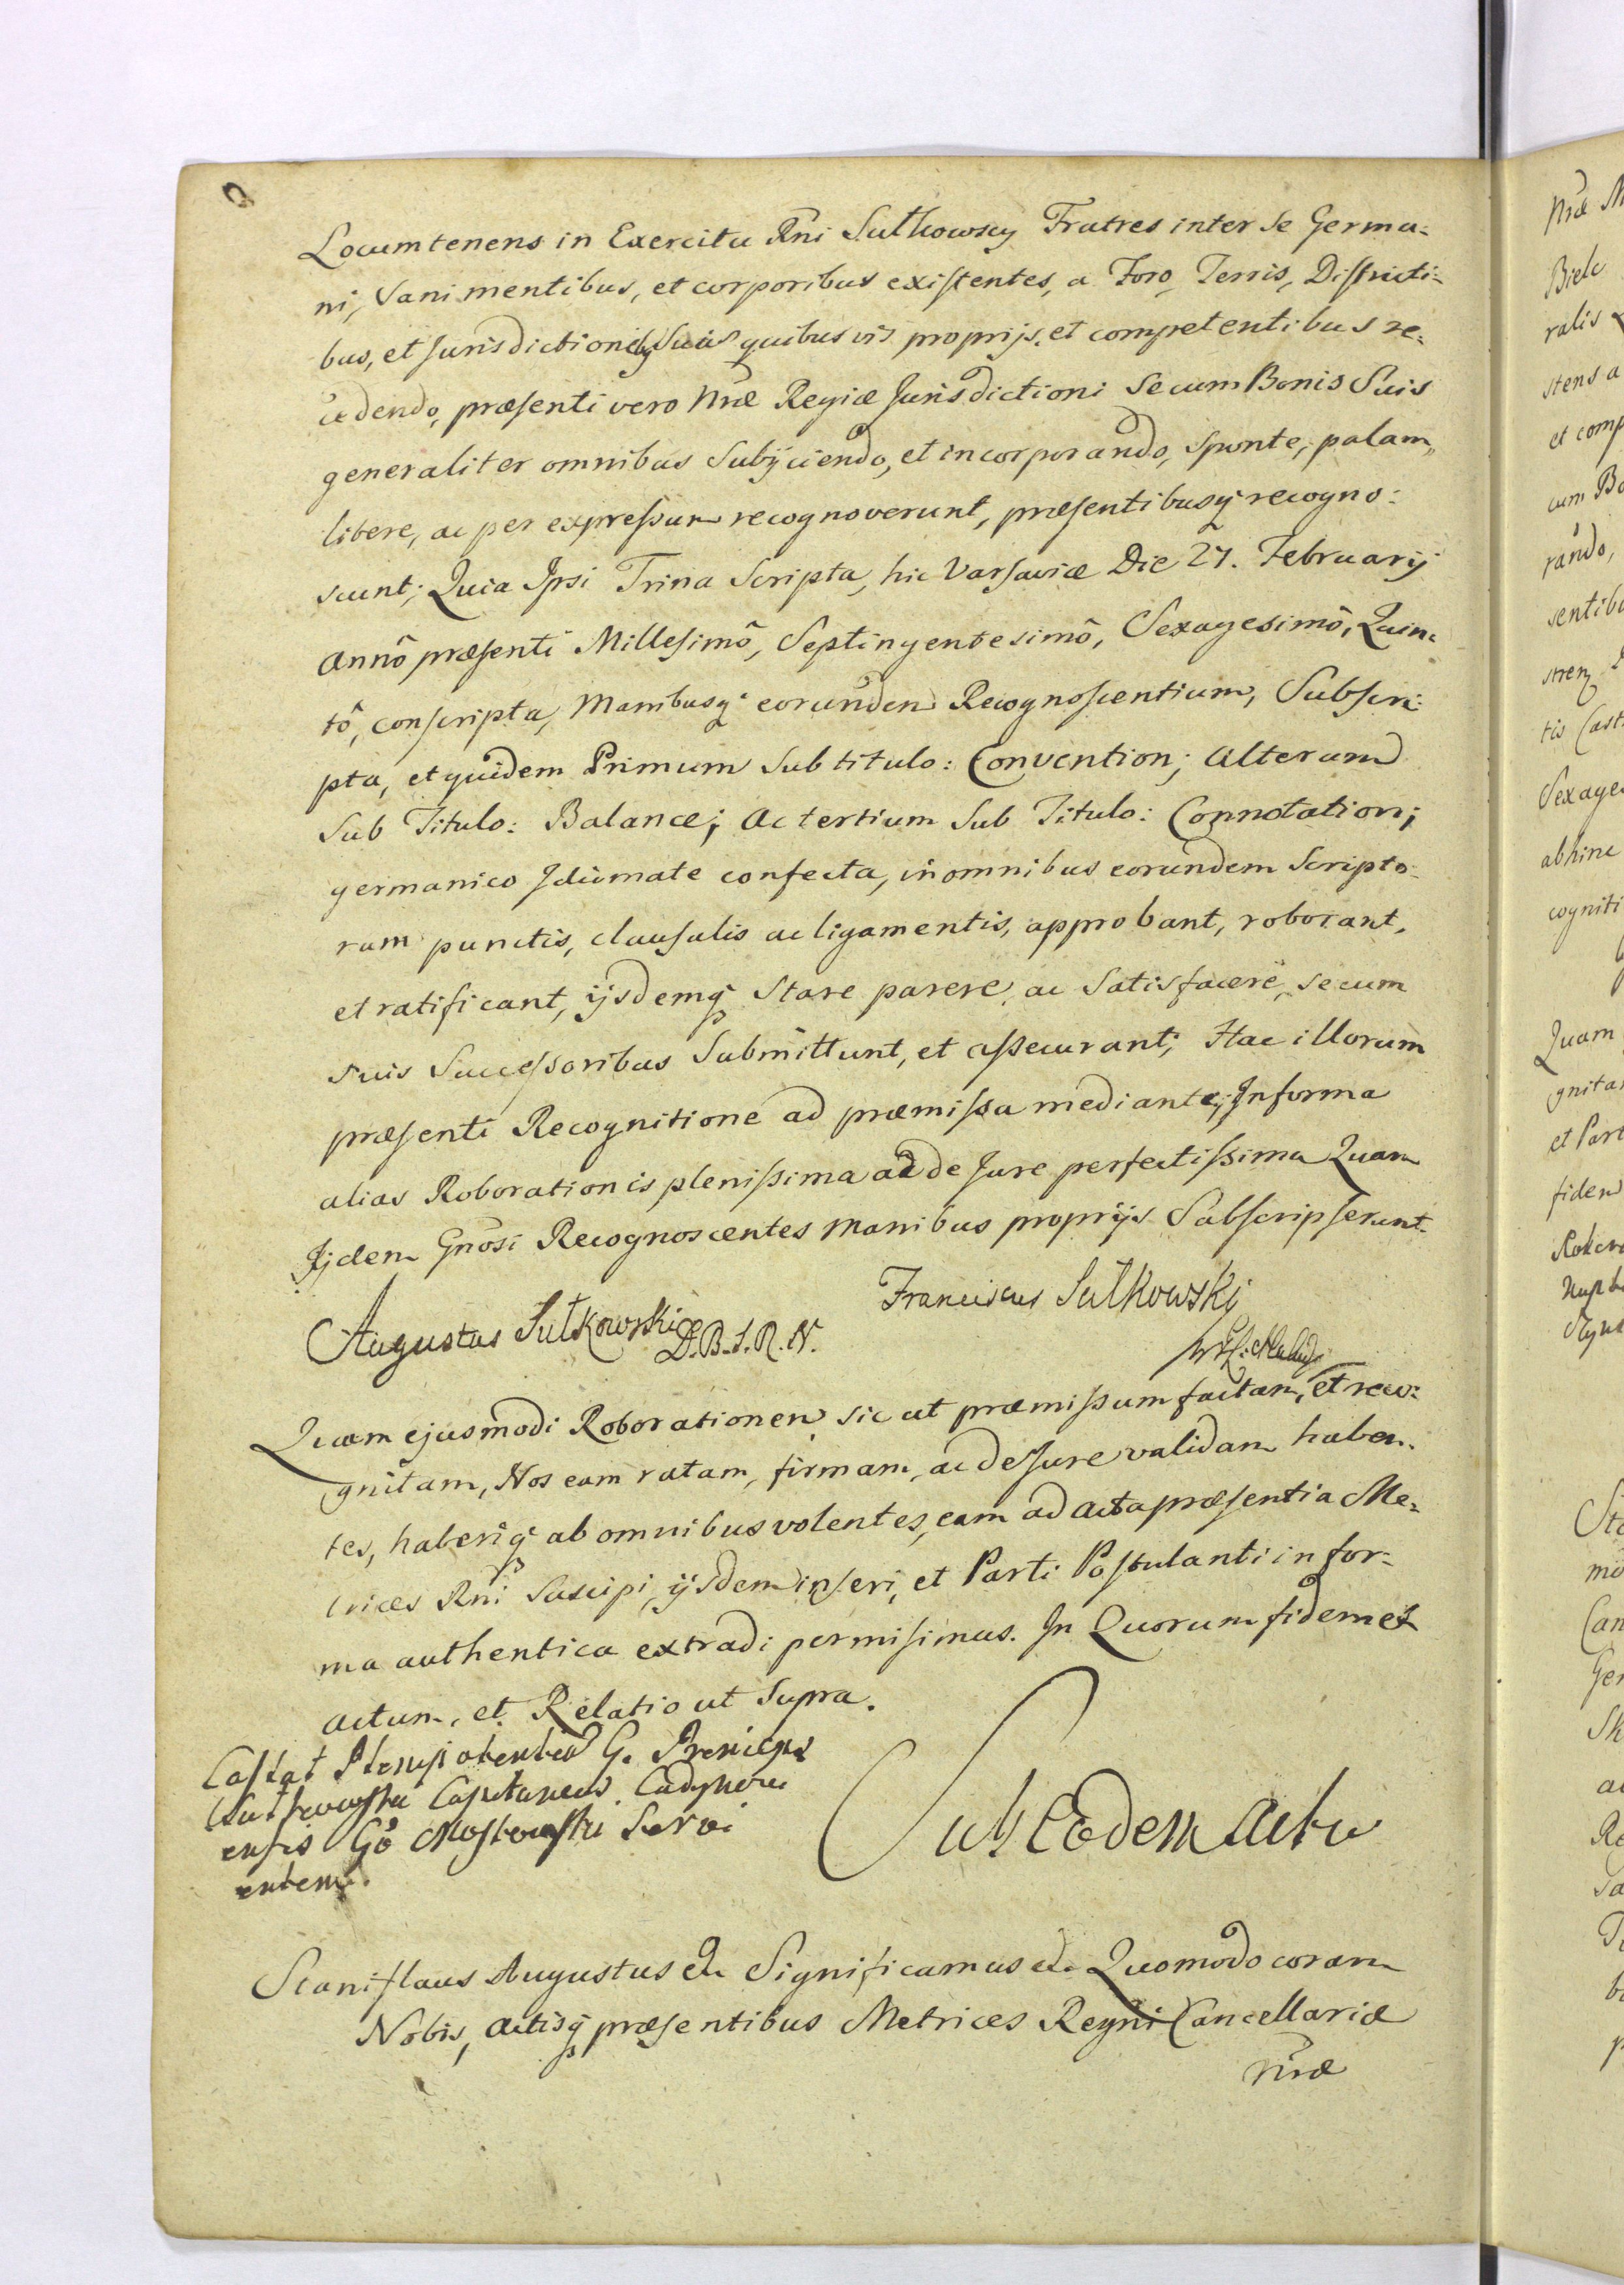 Locumtenens in Exercitu Rni Sulkowscy Fratres inter se Germa:
ni, Sani mentibus, et corporibus existentes, a Foro, Terris, Districti-
bus, et Jurisdictionibq Suis quibus vis proprijs, et competentibus re:
cedendo, præsenti vero Nræ Regiæ Jurisdictioni Se cum Bonis Suis
generaliter omnibus Subijciendo, et incorporando, sponte, palam,
libere, ac per expressum recognoverunt, præsentibusq recogno:
scunt; Quia Ipsi Trina Scripta, hic Varsaviæ Die 27. Februarij
Annô præsenti Millesimô, Septingentesimô, Sexagesimô, Quin:
tô, conscripta, Manibusq eorundem Recognoscentium, Subscri:
pta, et quidem Primum Sub titulo: Convention; Alterum
Sub Titulo: Balance; Ac tertium Sub Titulo: Connotation;
germanico Idiomate confecta, in omnibus eorundem Scripto-
rum punctis, clausulis ac ligamentis, approbant, roborant,
et ratificant, ijsdemq Stare parere, ac Satisfacere, se cum
suis Successoribus Submittunt, et assecurant; Hac illorum
præsenti Recognitione ad præmissa mediante; In forma
alias Roborationis plenissima ac de Jure perfectissima Quam
Ijdem Gnosi Recognoscentes Manibus proprijs Subscripserunt.
Augustus Sułkowski D.B.S.R.N.
Franciscus Sulkowski
Quam ejusmodi Roborationem sic ut præmissum factam, et reco:
gnitam, Nos eam ratam, firmam, ac de Jure validam haben:
tes, haberiq ab omnibus volentes, eam ad Acta præsentia Me:
trices Rni Suscipi, ijsdem inseri, et Parti Postulanti in for-
ma authentica extradi permisimus. In Quorum fidem et
Actum, et Relatio ut Supra.
Sub Eodem Actu
Stanislaus Augustus &c Significamus &c Quomodo coram
Nobis, Actisq præsentibus Metrices Regni Cancellariæ
Nræ